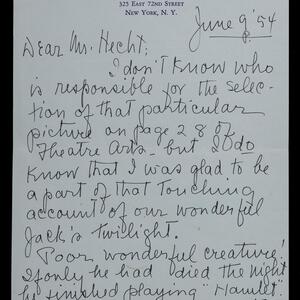 325 EAST 72ND STREET
NEW YORK, N. Y.
June 9' 54
Dear Mr. Hecht;
I don't know who
is responsible for the selec-
tion of that particular
picture on page 28 of
Theatre Arts - but I do
know that I was glad to be
a part of that touching
account of our wonderful
Jack's twilight.
Poor wonderful creature!
If only he had died the night
he finished playing "Hamlet"